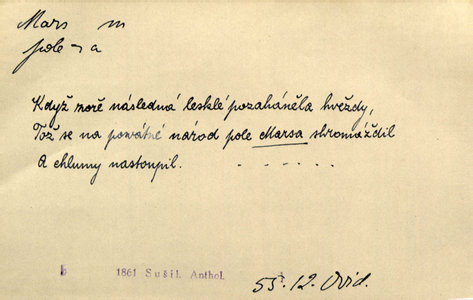 Mars m
pole ¬ a
Když moře následná lesklé pozaháněla hvězdy,
Tož se na posvátné národ pole Marsa shromáždil
A chlumy nastoupil. . . . . . .
b 1861 Sušil. Anthol.
53.12. Ovid.